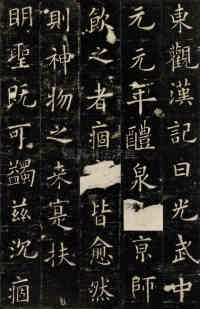 東觀漢記曰光武中
元元年醴泉京師
飲之者痼皆愈然
則神物之来寔扶
明聖既可蠲兹沉痼